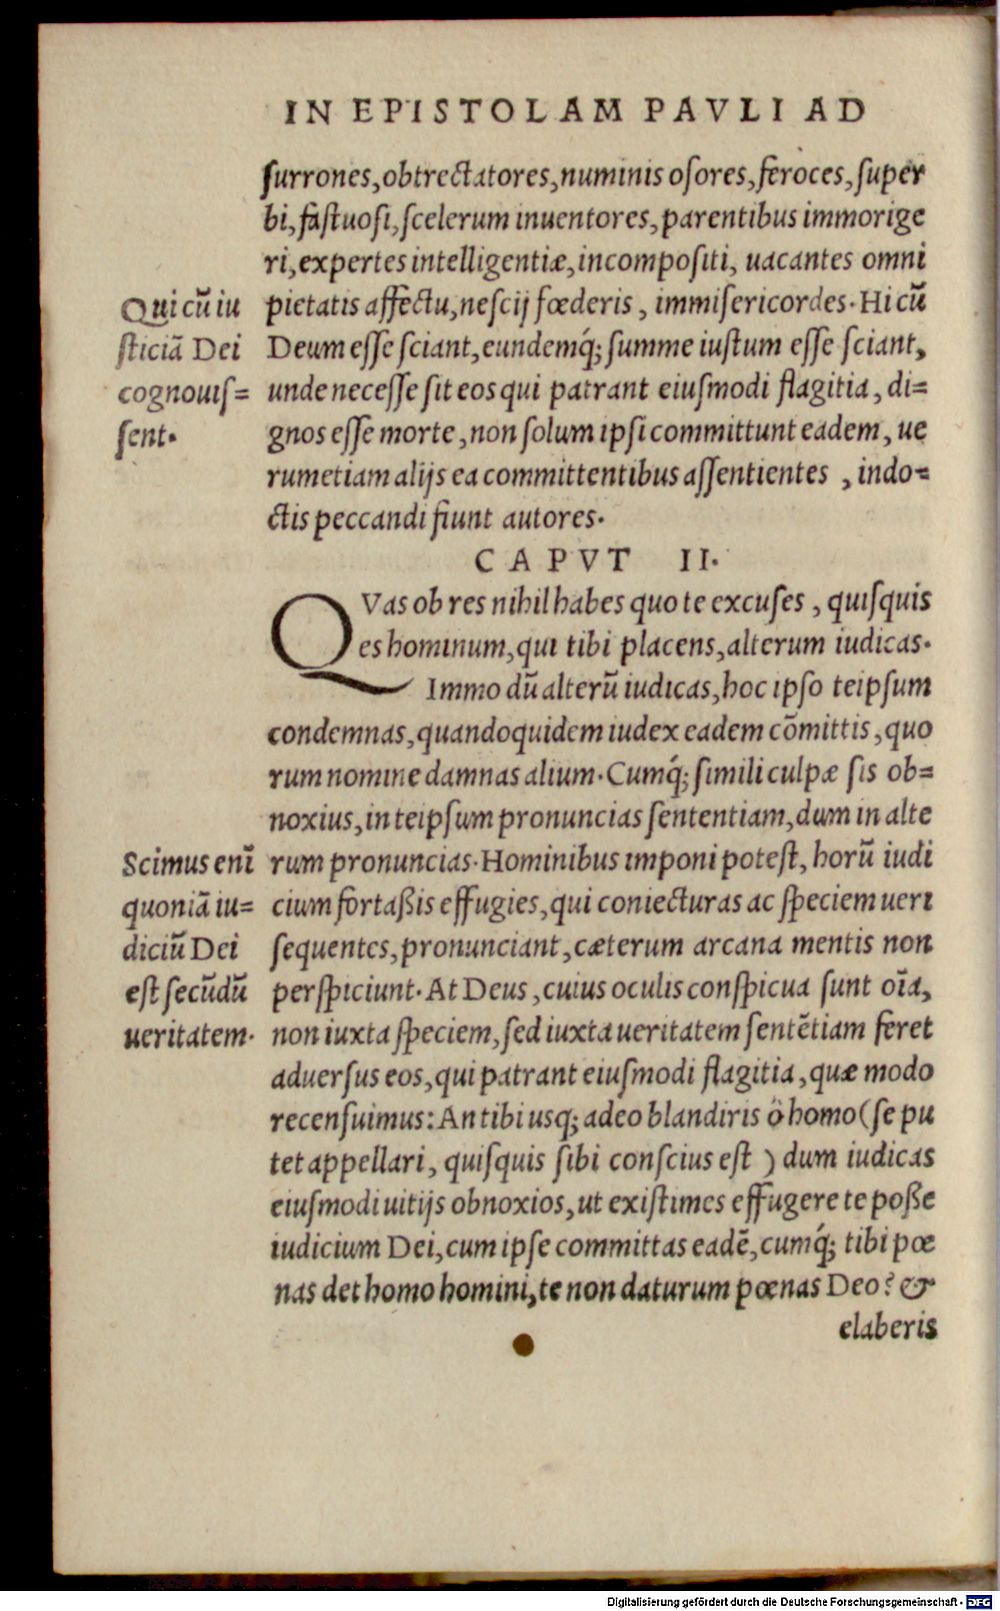 IN EPISTOLAM PAVLI AD
ſurrones, obtrectatores, numinis oſores, feroces, ſuper
bi, faſtuoſi, ſcelerum inuentores, parentibus immorige
ri, expertes intelligentiæ, incompoſiti, uacantes omni
pietatis affectu, neſcij fœderis, immiſericordes. Hi cũ
Deum eſſe ſciant, eundemq́; ſumme iuſtum eſſe ſciant,
unde neceſſe ſit eos qui patrant eiuſmodi flagitia, di=
gnos eſſe morte, non ſolum ipſi committunt eadem, ue
rumetiam alijs ea committentibus aſſentientes, indo=
ctis peccandi fiunt autores.
Qui cũ iu
ſticiã Dei
cognouiſ=
ſent.
CAPVT II.
QVas ob res nihil habes quo te excuſes, quiſquis
es hominum, qui tibi placens, alterum iudicas.
Immo dũ alterũ iudicas, hoc ipſo teipſum
condemnas, quandoquidem iudex eadem cõmittis, quo
rum nomine damnas alium. Cumq́; ſimili culpæ ſis ob=
noxius, in teipſum pronuncias ſententiam, dum in alte
rum pronuncias. Hominibus imponi poteſt, horũ iudi
cium fortaßis effugies, qui coniecturas ac ſpeciem ueri
ſequentes, pronunciant, cæterum arcana mentis non
perſpiciunt. At Deus, cuius oculis conſpicua ſunt oĩa,
non iuxta ſpeciem, ſed iuxta ueritatem ſentẽtiam feret
aduerſus eos, qui patrant eiuſmodi flagitia, quæ modo
recenſuimus: An tibi uſq; adeo blandiris ô homo (ſe pu
tet appellari, quiſquis ſibi conſcius eſt) dum iudicas
eiuſmodi uitijs obnoxios, ut exiſtimes effugere te poße
iudicium Dei, cum ipſe committas eadẽ, cumq́; tibi pœ
nas det homo homini, te non daturum pœnas Deo? &
elaberis
Scimus enĩ
quoniã iu=
diciũ Dei
eſt ſecũdũ
ueritatem.
Digitalisierung gefördert durch die Deutsche Forschungsgemeinschaft - DFG